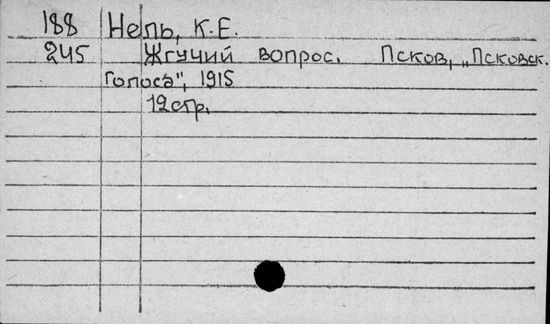 188 Нель, К.Е.
245 Жгучий вопрос. Псков, „Псковск.
Голоса", 1915
12стр.